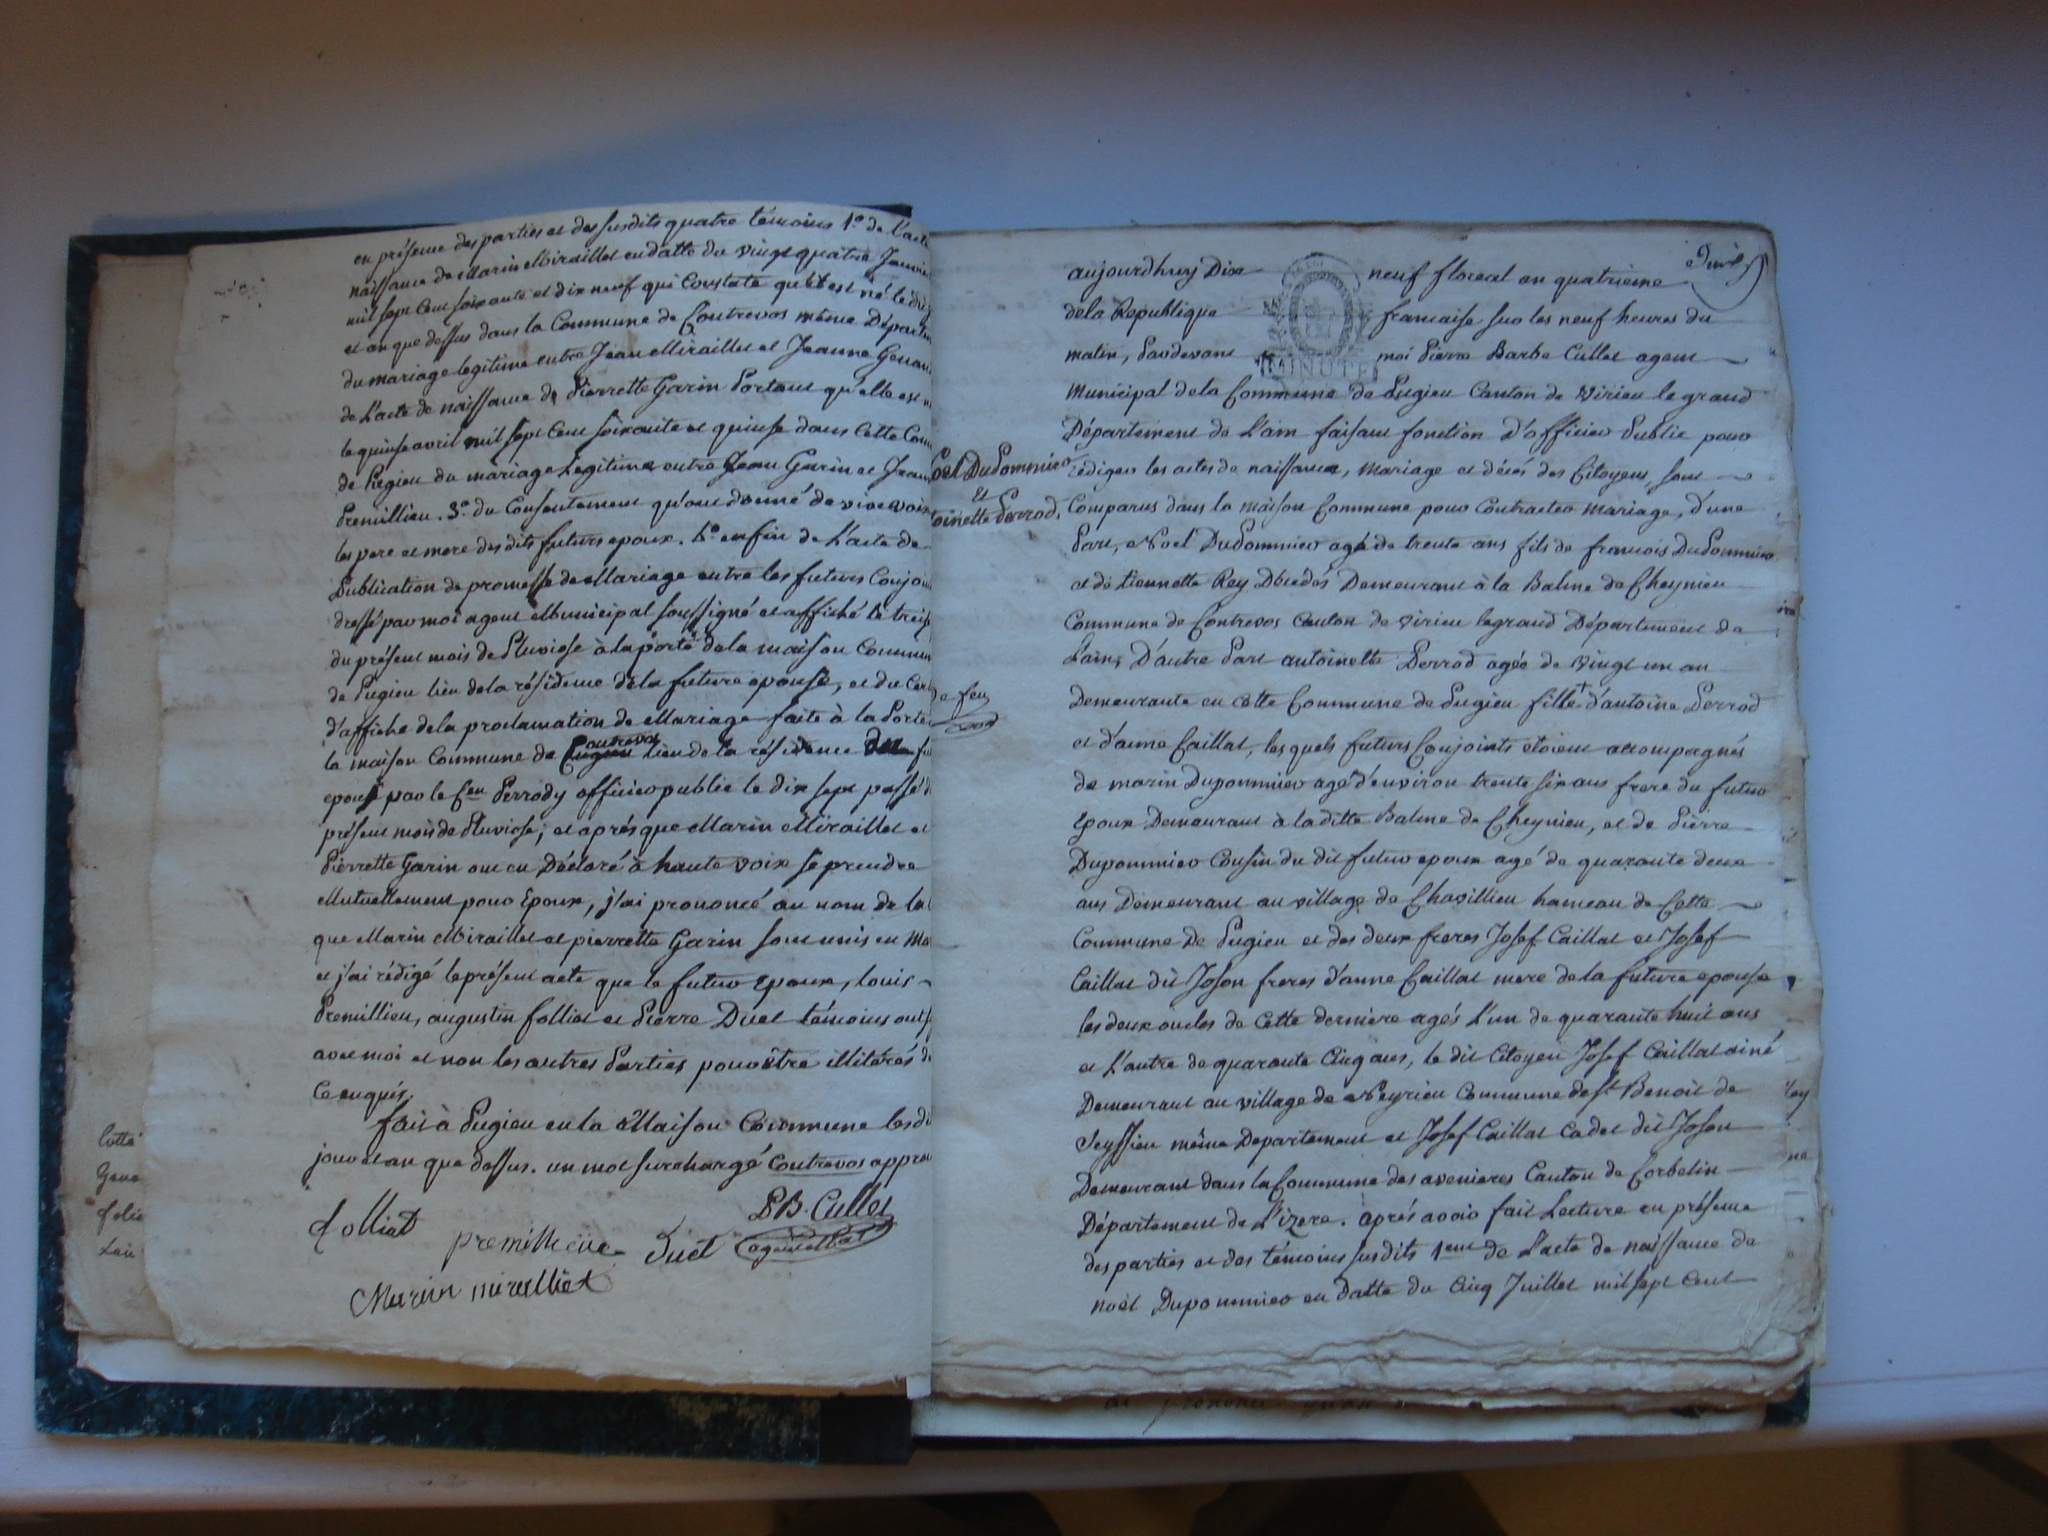 en présence des parties et des susdits quatre témoins 1º de l'acte
naissance de Marin Miraillet en datte du vingt quatre Janvie
mil sept cent soixante et dix neuf qui constate qu'il est né le dit
et an que dessus dans la Commune de Contrevos même Départm
du mariage legitime entre Jean Miraillet et Jeanne
de l'acte de naissance de Pierrette Garin Portant qu'elle est n
le quinse avril mil sept cent soixante et quinse dans cette Com
de Pugieu du mariage Légitime entre Jean Garin et Jean
Premillieu. 3º du Consentement qu'ont donné de vive voix
les pere et mere des dits futurs epoux. 4º enfin de l'acte de
Publication de promesse de Mariage entre les futurs Conjoi
dressé par moi agent Municipal soussigné et affiché le treis
du présent mois de Pluviose à la porte de la maison Commun
de Pugieu lieu de la résidence de la future epouse, et du Cer
d'affiche de la proclamation de Mariage faite à la Porte
la maison Commune de Contrevos lieu de la résidence du fu
epoux par le Cen Perrody officier public le dix sept passé d
présent mois de Pluviose; et après que Marin Miraillet et
Pierrette Garin ont eu Déclaré à haute voix se prendre
Mutuellement pour Epoux, j'ai prononcé au nom de la l
que Marin Miraillet et pierrette Garin sont unis en Ma
et j'ai rédigé le présent acte que le futur Epoux, Louis
Premillieu, augustin folliet et Pierre Duet témoins ont s
avec moi et non les autres Parties pour être illitérés d
Ce enquis.
fait à Pugieu en la Maison Commune les di
jour et an que dessus. un mot surchargé Contrevos approu
folliet premillieu Duet P.B. Cullet
agent Mal
Marin miralliet
Cotte
folie
aujourdhuy Dix neuf floreal an quatrieme
de la Republique francaise sur les neuf heures du
matin, Pardevant moi Pierre Barbe Cullet agent
MINUTE
Municipal de la Commune de Pugieu Canton de Virieu le grand
Département de L'ain faisant fonction D'officier Public pour
rédiger les actes de naissance, Mariage et décés des Citoyens, sont
Noel DuPommier
et
toinette Perrod.
Comparus dans la maison Commune pour Contracter Mariage, d'une
Part, Noel DuPommier agé de trente ans fils de francois DuPommier
et de Lionnette Rey Décédés Demeurant à la Balme de Cheynieu
Commune de Contrevos Canton de Virieu legrand Département de
L'ain; D'autre Part antoinette Perrod agée de vingt un an
Demeurante en cette Commune de Pugieu fille + d'antoine Perrod
+ de feu
et d'anne Caillat, les quels futurs Conjoints etoient accompagnés
de marin Dupommier agé d'environ trente six ans frere du futur
Epoux Demeurant à la ditte Balme de Cheynieu, et de Pierre
Dupommier Cousin du dit futur epoux agé de quarante deux
ans Demeurant au village de Chavillieu hameau de Cette
Commune De Pugieu et des deux freres Josef Caillat et Josef
Caillat dit Joson freres d'anne Caillat mere de la future epouse
les deux oncles de cette derniere agés L'un de quarante huit ans
et L'autre de quarante Cinq ans, le dit Citoyen Josef Caillat ainé
Demeurant au village de Neyrieu Commune de St Benoit de
Seyssieu même Departement et Josef Caillat Cadet dit Joson
Demeurant dans la Commune des avenieres Canton de Corbelin
Département de L'izere. après avoir fait Lecture en présence
des parties et des témoins susdits 1ent de L'acte de naissance de
noël Dupommier en datte du Cinq Juillet mil sept cent